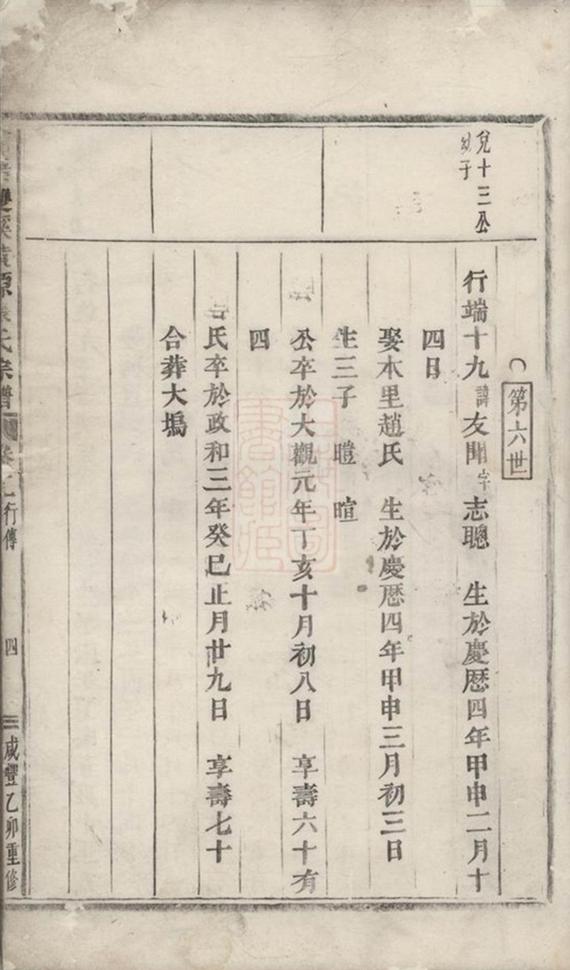 第六世
兌十三公
幼子
行端十九 諱友聞字志聰 生於慶厯四年甲申二月十
四日
娶木里趙氏 生於慶厯四年甲申三月初三日
生三子 暟 暄
公卒於大觀元年丁亥十月初八日 享壽六十有
四
氏卒於政和三年癸巳正月廿九日 享壽七十
合葬大塢
雙溪 源 氏宗譜 行傳 四 咸豐乙卯重修